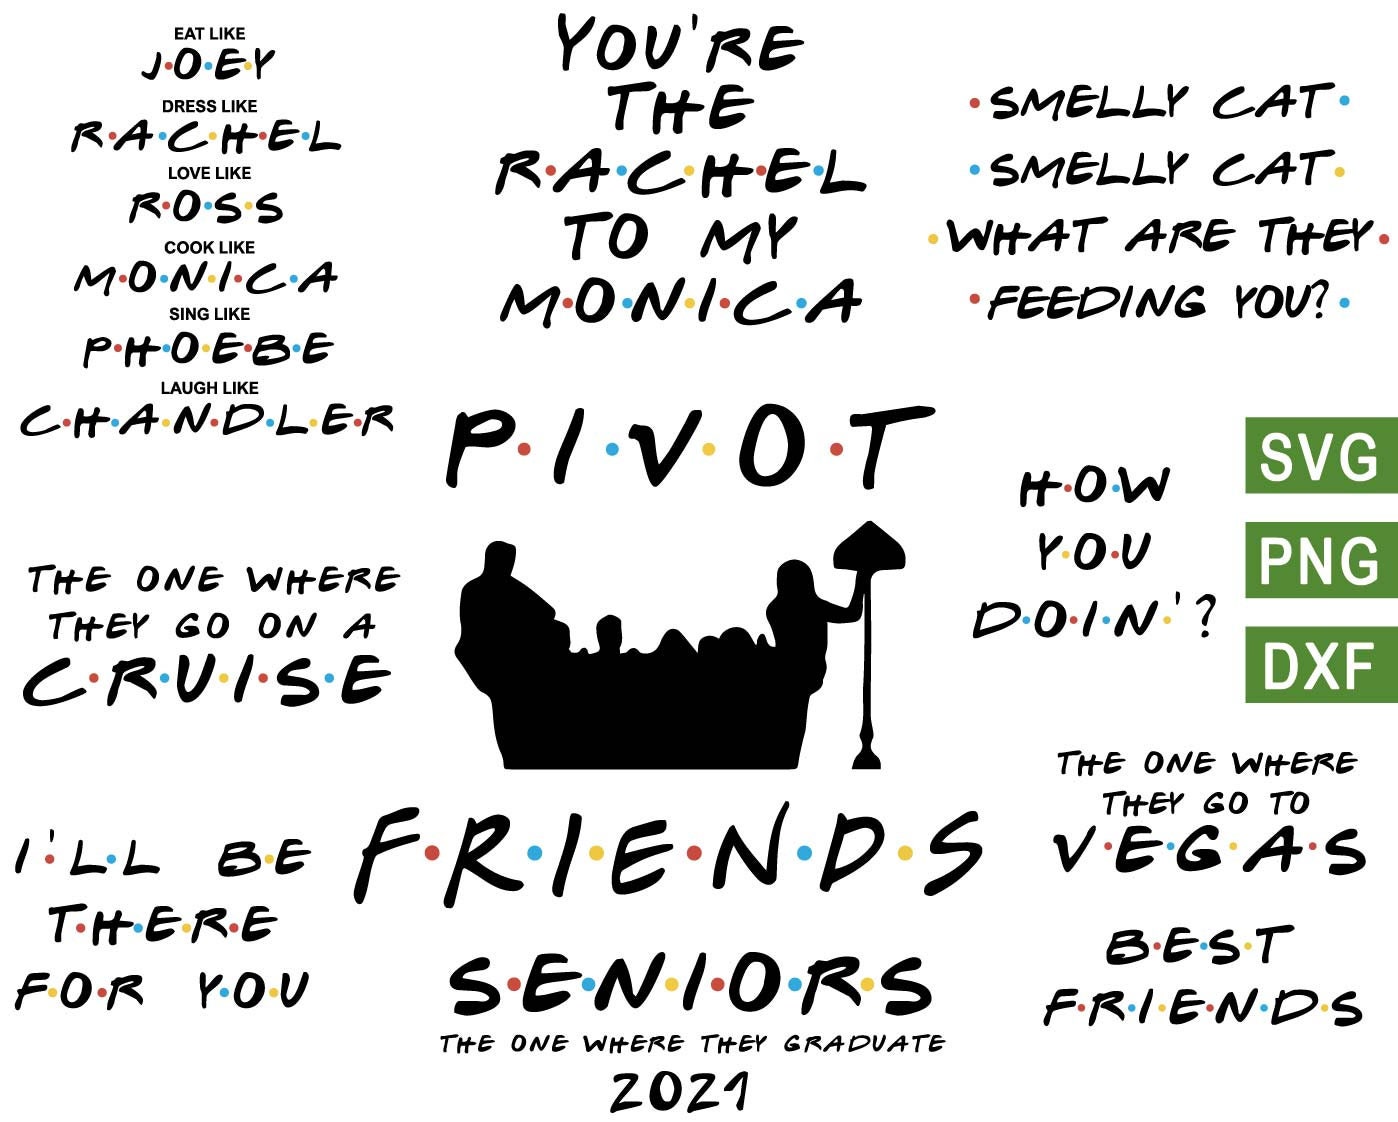 EAT LIKE
J•O•E•Y
DRESS LIKE
R•A•C•H•E•L
LOVE LIKE
R•O•S•S
COOK LIKE
M•O•N•I•C•A
SING LIKE
P•H•O•E•B•E
LAUGH LIKE
C•H•A•N•D•L•E•R
YOU'RE
THE
R•A•C•H•E•L
TO MY
M•O•N•I•C•A
•SMELLY CAT•
•SMELLY CAT•
•WHAT ARE THEY•
•FEEDING YOU?•
P•I•V•O•T
H•O•W
Y•O•U
D•O•I•N•'?
SVG
PNG
DXF
THE ONE WHERE
THEY GO ON A
C•R•U•I•S•E
THE ONE WHERE
THEY GO TO
V•E•G•A•S
I'•L•L B•E
T•H•E•R•E
F•O•R Y•O•U
F•R•I•E•N•D•S
S•E•N•I•O•R•S
THE ONE WHERE THEY GRADUATE
2021
B•E•S•T
F•R•I•E•N•D•S